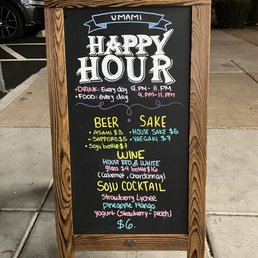 UMAMI
HAPPY
HOUR
• DRINK: Every day 9.PM - 11.PM
• FOOD: every day 9.PM - 11.PM
BEER SAKE
• ASAHI $3 • HOUSE SAKE $5
• SAPPORO $5 • YAEGAKI $7
• Soju bottle $7
WINE
HOUSE RED & WHITE
glass $4 bottle $16
(cabernet, chardonnay)
SOJU COCKTAIL
Strawberry Lychee
Pineapple Mango
Yogurt (strawberry - peach)
$6.